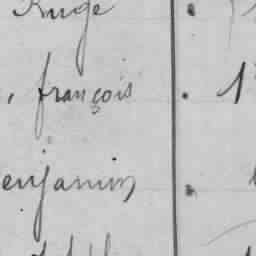 Ruge
, françois . 1
enjamin